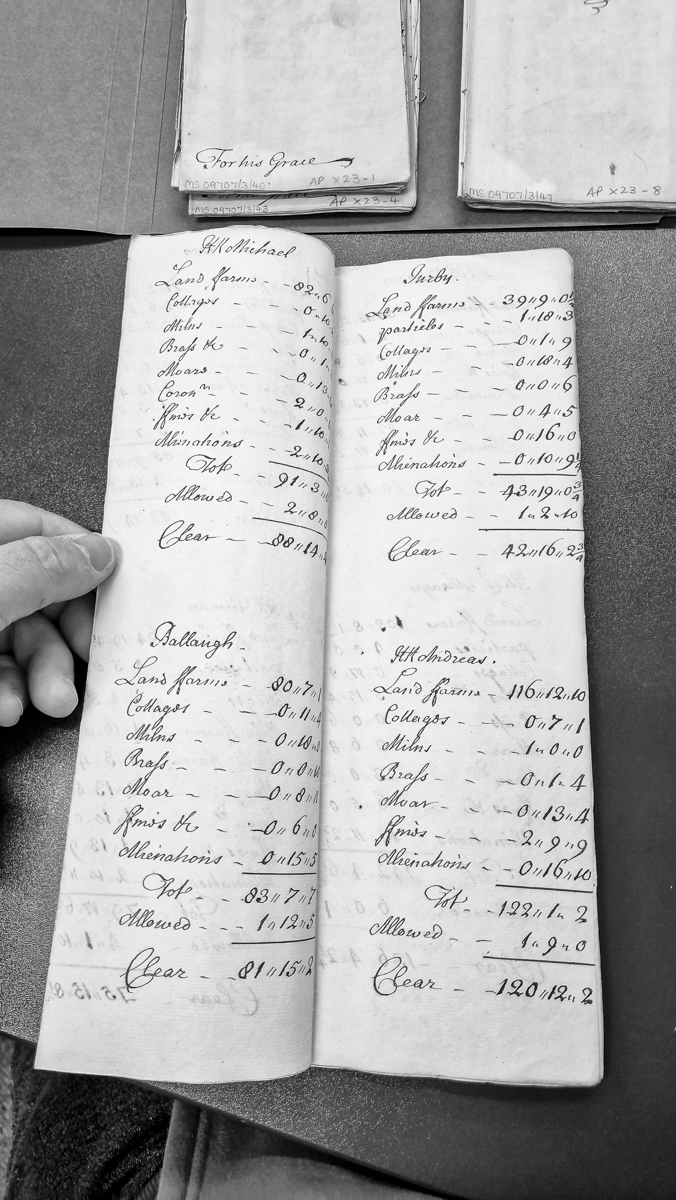 For his Grace
MS 09707/3/40
AP X23-1
MS 09707/3/43
AP X23-4
MS 09707/3/47
AP X23-8
KK Michael
Land ffarms - - 82"6
Cottages - - 0"10
Milns - - 1"10
Brass &c - 0"1
Moars - - 0"13
Coronrs - - 2"0
ffines &c - - 1"10
Alienations - - 2"10
Tot - - 91"3
Allowed - - 2"8
Clear - - 88"14
Ballaugh.
Land ffarms - 80"7"1
Cottages - - 0"11"4
Milns - - 0"18
Brass - - 0"0
Moar - - 0"8
ffines &c - - 0"6"0
Alienations - 0"15"5
Tot - - 83"7"7
Allowed - - 1"12"5
Clear - - 81"15"2
Jurby.
Land ffarms - 39"9"0½
particles - - 1"18"3
Cottages - - 0"1"9
Milns - - 0"18"4
Brass - - 0"0"6
Moar - - 0"4"5
ffines &c - - 0"16"0
Alienations - - 0"10"9¼
Tot - - 43"19"0¾
Allowed - - 1"2"10
Clear - - 42"16"2¾
KK Andreas.
Land ffarms - 116"12"10
Cottages - - 0"7"1
Milns - - 1"0"0
Brass - - 0"1"4
Moar - - 0"13"4
ffines - - 2"9"9
Alienations - - 0"16"10
Tot - - 122"1"2
Allowed - - 1"9"0
Clear - - 120"12"2